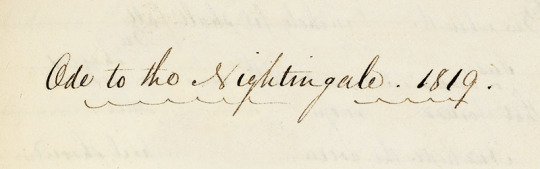 Ode to the Nightingale. 1819.